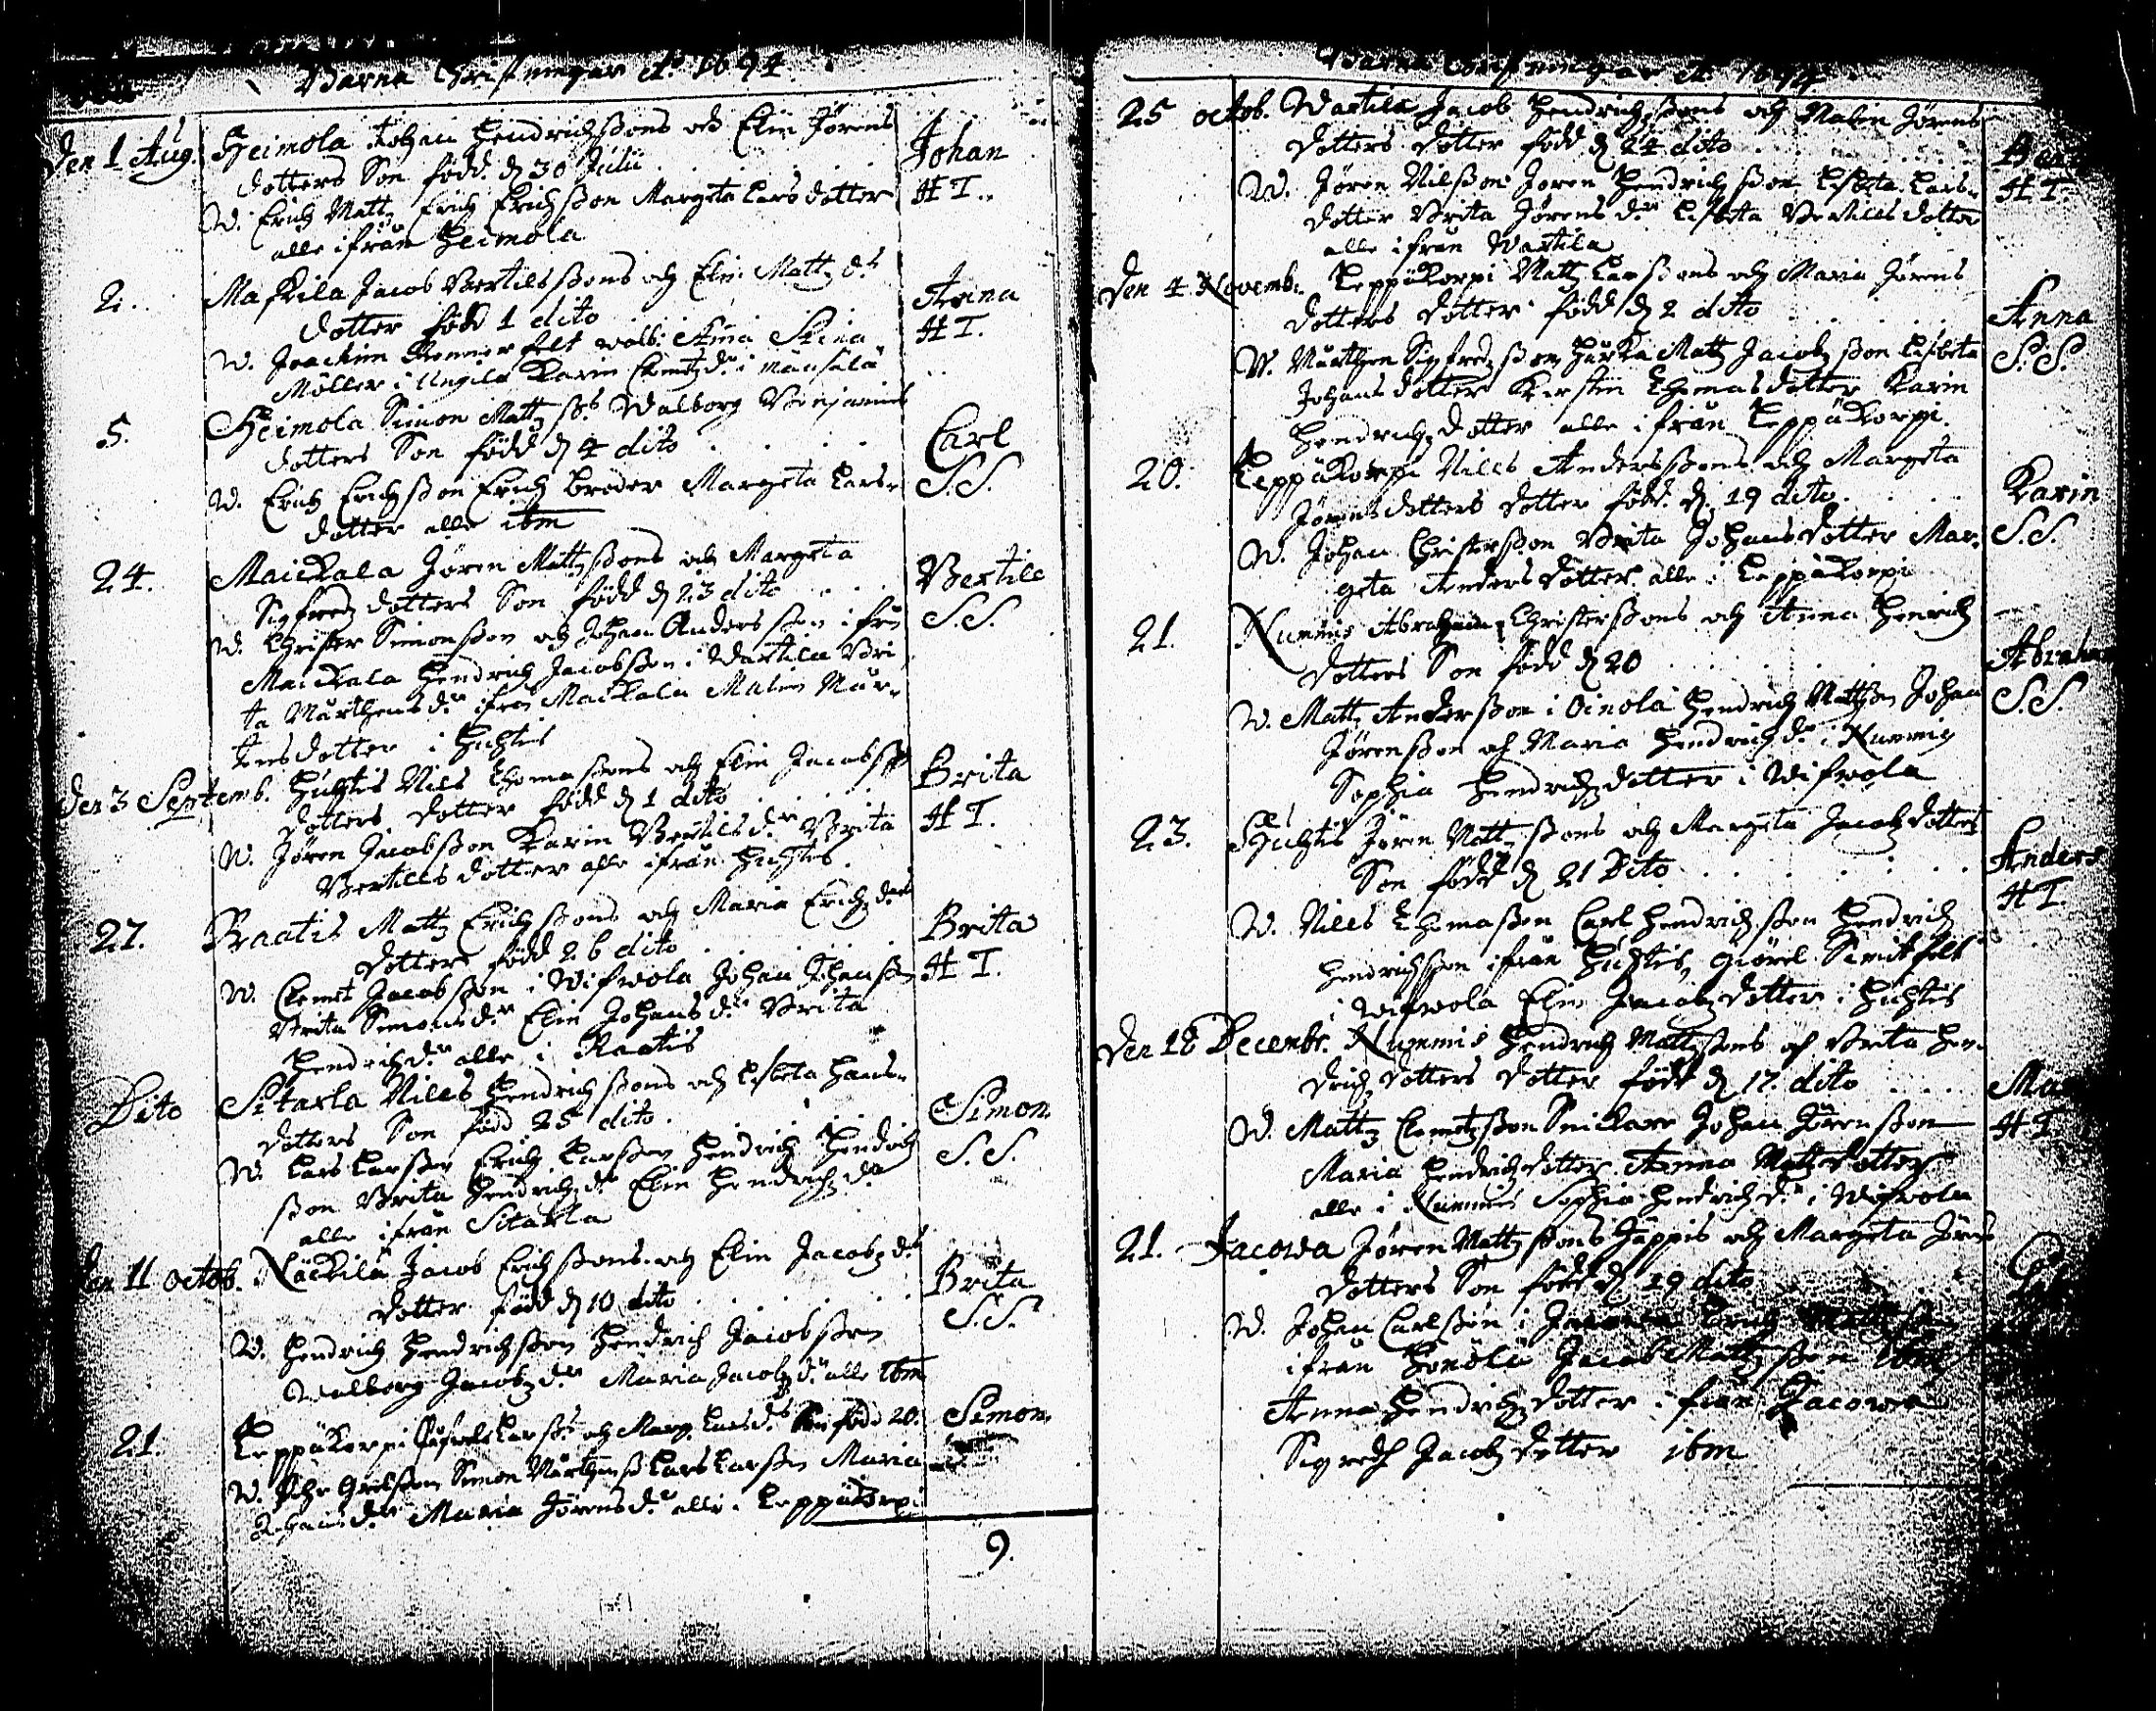 Barna Christningar A:o 1694
Den 1 Aug. Heimola Johan Hendrichssons och Elin Jörens Johan
dotters Son född d 30 Julii
W. Erich Matz Erich Erichsson Margeta Larsdotter H T.
alle ifrån Heimola
2. Mafkila Jacob Bertilssons och Elin Matz d:rs Anna
dotter född 1 dito
W. Joachim walb: Stina H T.
Möller i Karin Clemetz d:r i
5. Heimola Simon Matz ss Walborg Benjamins Carl
dotters Son född d 4 dito
W. Erich Erichsson Erich broder Margeta Lars- S.S.
dotter alle ibm
24. Maickala Jören Mattzssons och Margeta Bertill
Sigfredz dotters Son född d 23 dito
W. Christer Simonsson och Johan Andersson ifrå S.S.
Maickala Hendrich Jacobsson i Wartila Bri
ta Mårthens d:r ifrå Maickala Malin Mår-
tensdotter i Huhtis
Den 3 Septemb. Huhtis Nils Thomassons och Elin Jacobs Brita
dotters dotter född d 1 dito
W. Jören Jacobsson Karin Bertils d:r Brita H T.
Bertills dotter alle ifrån Huhtis.
27. Raatis Mattz Erichssons och Maria Erichz d:rs Brita
dotter född 26 dito
W. Clemet Jacobsson i Wifwola Johan Johansson H T.
Brita Simons d:r Elin Johans d:r Brita
Hendrichz d:r alle i Raatis
Dito Sitarla Nills Hendrichssons och Lisbeta Hans- Simon
dotters Son född 25 dito.
W. Lars Larsson Erich Larsson Hendrich Hendrich S.S.
sson Brita Hendrichz d:r Elin Hendrichz d:r
alle ifrån Sitarla
Den 11 Octob. Näckilä Jacob Erichssons och Elin Jacobz d:rs Brita
dotter född d 10 dito
W. Hendrich Hendrichsson Hendrich Jacobsson S.S.
Walborg Jacobz d:r Maria Jacobz d:r alle ibm
21. Leppäkorpi Larss och Marg. Lars d:rs Son född 20. Simon
W. Simon Mårthenss Lars Larsson Maria
Johans d:r Maria Jörens d:r alle i Leppäkorpi
9.
Barna Christningar A:o 1694
25 octob. Wartila Jacob Hendrichssons och Malin Jörens
dotters dotter född d 24 dito
W. Jören Nilsson Jören Hendrichsson Lisbeta Lars- H T.
dotter Brita Jörens d:r Lisbeta Bertills dotter
alle ifrån Wartila
Den 4 Novemb. Leppäkorpi Matz Larssons och Maria Jörens
dotters dotter född d 2 dito Anna
W. Mårthen Sigfredzson Matz Jacobzson Lisbeta S.S.
Johans dotter Kerstin Thomas dotter Karin
Hendrichz dotter alle ifrån Leppäkorpi.
20. Leppäkorpi Nills Anderssons och Margeta Karin
Jörens dotters dotter född d 19 dito
W. Johan Christersson Brita Johans dotter Mar- S.S.
geta Anders dotter alle i Leppäkorpi
21. Nummis Abraham Christerssons och Anna Henrich
dotters Son född d 20 Abraham
W. Mattz Andersson i Oinola Hendrich Mattsson Johan S.S.
Jörensson och Maria Hendrich d:r i Nummis
Sophia Hendrichzdotter i Wifwola
23. Huhtis Jören Mattzssons och Margeta Jacobz dotters
Son född d 21 Dito Anders
W. Nills Thomasson Carl Hendrichsson Hendrich H T.
Hendrichsson ifrån Huhtis, Giörel
i Wifwola Elin Jacobz dotter i Huhtis
Den 18 Decembr. Nummis Hendrich Mattzssons och Brita Hen-
drich dotters dotter född d 17. dito
W. Mattz Clemetzsson Snickare Johan Jörensson H T.
Maria Hendrichz dotter Anna Mattz dotter
alle i Nummis Sophia Hendrich d:r i Wifwola
21. Jacowa Jören Mattzssons och Margeta Jörens
dotters Son född d 19 dito
W. Johan Carlsson i
ifrån Jacob Mattzsson ibm
Anna Hendrichz dotter ifrån Jacowa
Sigredh Jacobz dotter ibm